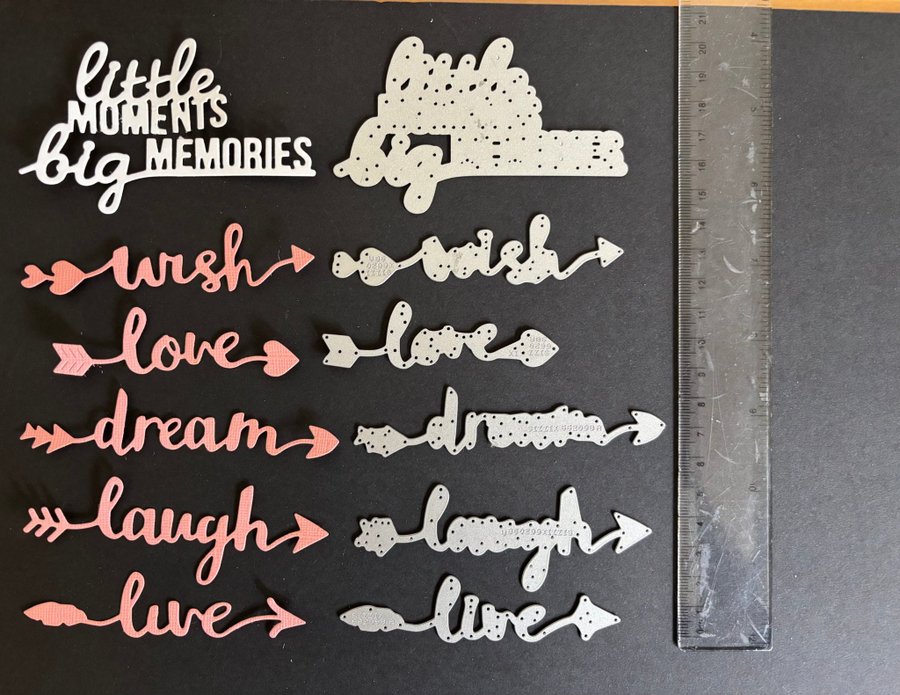 little
MOMENTS
big MEMORIES
wish
wish
love
love
dream
dream
laugh
laugh
live
live